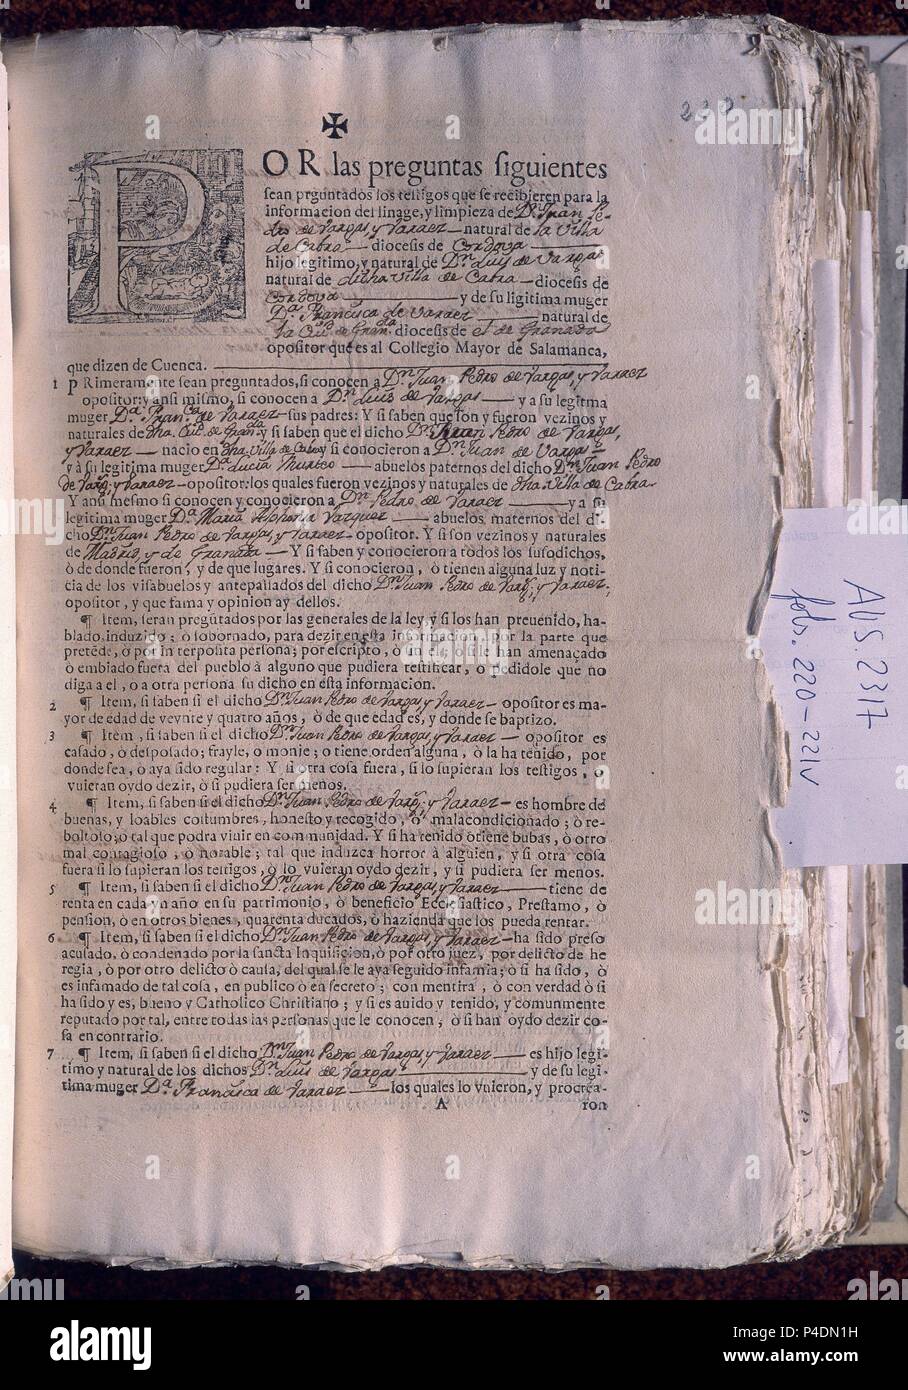 220
✠
POR las preguntas siguientes
sean prguntados los testigos que se recibieren para la
informacion del linage, y limpieza de Dn. Juan Pe-
dro de Vargas, y Varaez — natural de la Villa
de Cabra — diocesis de Cordova —
hijo legitimo, y natural de Dn. Luis de Vargas
natural de dicha Villa de Cabra — diocesis de
Cordova — y de su ligitima muger
Da. Francisca de Varaez — natural de
la Ciud. de Granda. diocesis de el de Granada
opositor que es al Collegio Mayor de Salamanca,
que dizen de Cuenca.
1 PRimeramente sean preguntados, si conocen a Dn. Juan Pedro de Vargas, y Varaez
opositor: y ansi mismo, si conocen à Dn. Luis de Vargas — y a su legitma
muger Da. Franca. de Varaez — sus padres: Y si saben que son y fueron vezinos y
naturales de dha. Ciud. de Granda. y si saben que el dicho Dn. Juan Pedro de Vargas,
y Varaez — nacio en dha. Villa de Cabra y si conocieron a Dn. Juan de Vargas
y à su legitima muger Da. Lucia Munteo — abuelos paternos del dicho Dn. Juan Pedro
de Varg. y Varaez — opositor: los quales fueron vezinos y naturales de dha Villa de Cabra
Y ansi mesmo si conocen y conocieron a Dn. Pedro de Varaez — y a su
legitima muger Da. Maria Alphonsa Vazquez — abuelos maternos del di-
cho Dn. Juan Pedro de Vargas, y Varaez — opositor. Y si son vezinos y naturales
de Madrid, y de Granada — Y si saben y conocieron a todos los susodichos,
ò de donde fueron, y de que lugares. Y si conocieron, ò tienen alguna luz y noti-
cia de los visabuelos y antepassados del dicho Dn. Juan Pedro de Varg. y Varaez,
opositor, y que fama y opinion ay dellos.
¶ Item, seran pregũtados por las generales de la ley, y si los han preuenido, ha-
blado, induzido; ò sobornado, para dezir en esta informacion, por la parte que
pretẽde, ò por interposita persona; por escripto, ò en el; ò si le han amenaçado
ò embiado fuera del pueblo à alguno que pudiera testificar, ò pedidole que no
diga a el, o a otra persona su dicho en esta informacion.
2 ¶ Item, si saben si el dicho Dn. Juan Pedro de Vargas, y Varaez — opositor es ma-
yor de edad de veynte y quatro años, ò de que edad es, y donde se baptizo.
3 ¶ Item, si saben si el dicho Dn. Juan Pedro de Vargas, y Varaez — opositor es
casado, ò desposado; frayle, o monje; o tiene orden alguna, ò la ha tenido, por
donde sea, ò aya sido regular: Y si otra cosa fuera, si lo supieran los testigos, o
vuieran oydo dezir, ò si pudiera ser menos.
4 ¶ Item, si saben si el dicho Dn. Juan Pedro de Varg. y Varaez — es hombre de
buenas, y loables costumbres, honesto y recogido, ò malacondicionado; ò re-
boltoso; o tal que podra viuir en communidad. Y si ha tenido o tiene bubas, ò otro
mal contagioso, ò notable; tal que induzca horror à alguien, y si otra cosa
fuera si lo supieran los testigos, ò lo vuieran oydo dezir, y si pudiera ser menos.
5 ¶ Item, si saben si el dicho Dn. Juan Pedro de Vargas, y Varaez — tiene de
renta en cada vn año en su patrimonio, ò beneficio Ecclesiastico, Prestamo, ò
pension, ò en otros bienes, quarenta ducados, ò hazienda que los pueda rentar.
6 ¶ Item, si saben si el dicho Dn. Juan Pedro de Vargas, y Varaez — ha sido preso
acusado, ò condenado por la sancta Inquisicion, ò por otro juez, por delicto de he
regia, ò por otro delicto ò causa, del qual se le aya seguido infamia; ò si ha sido, ò
es infamado de tal cosa, en publico ò en secreto; con mentira, ò con verdad ò si
ha sido y es, bueno y Catholico Christiano; y si es auido y tenido, y comunmente
reputado por tal, entre todas las personas que le conocen; ò si han oydo dezir co-
sa en contrario.
7 ¶ Item, si saben si el dicho Dn. Juan Pedro de Vargas, y Varaez — es hijo legi-
timo y natural de los dichos Dn. Luis de Vargas — y de su legi-
tima muger Da. Francisca de Varaez — los quales lo vuieron, y procrea-
A ron
AUS. 2317
fols. 220-221v
alamy
Image ID: P4DN1H
www.alamy.com